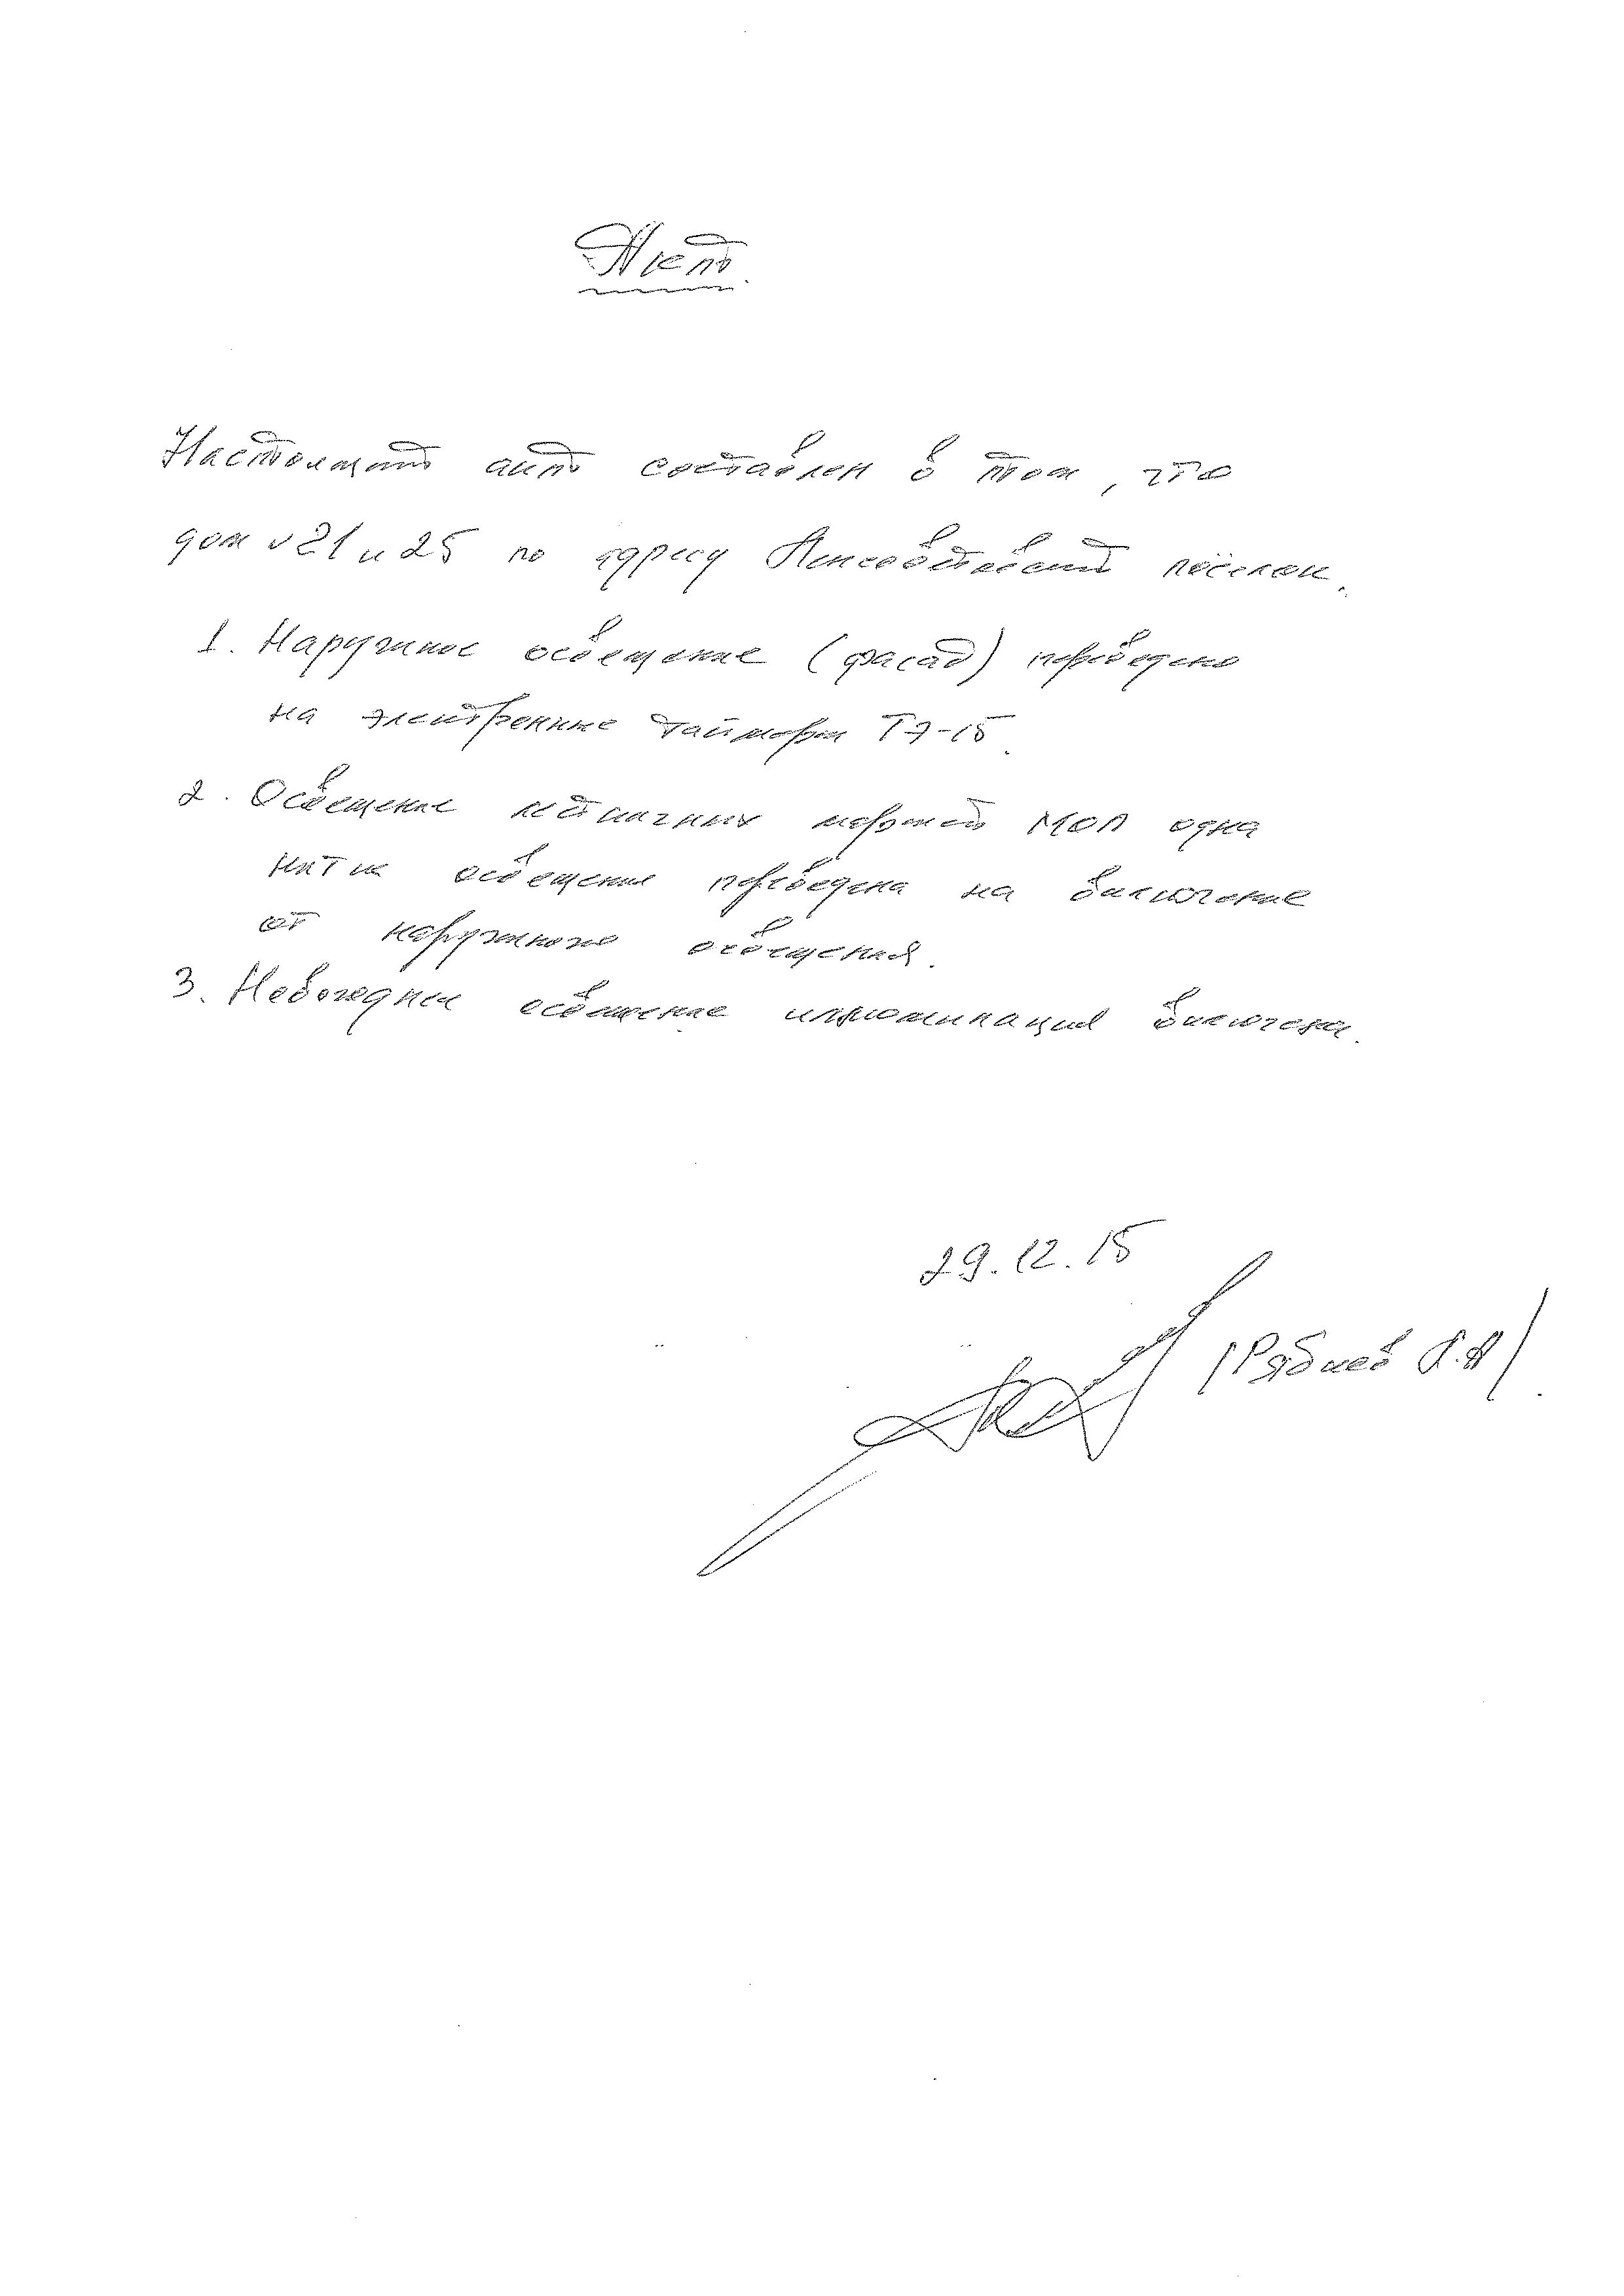 Акт.
Настоящий акт составлен в том, что
дом 21 и 25 по адресу посёлок.
1. Наружное освещение (фасад) переведено
на электронные таймеры ТЭ-15.
2. Освещение лестничных маршей МОП одна
нитка освещения переведена на включение
от наружного освещения.
3. Новогоднее освещение иллюминация включена.
29.12.15
/Рябцев А.А/